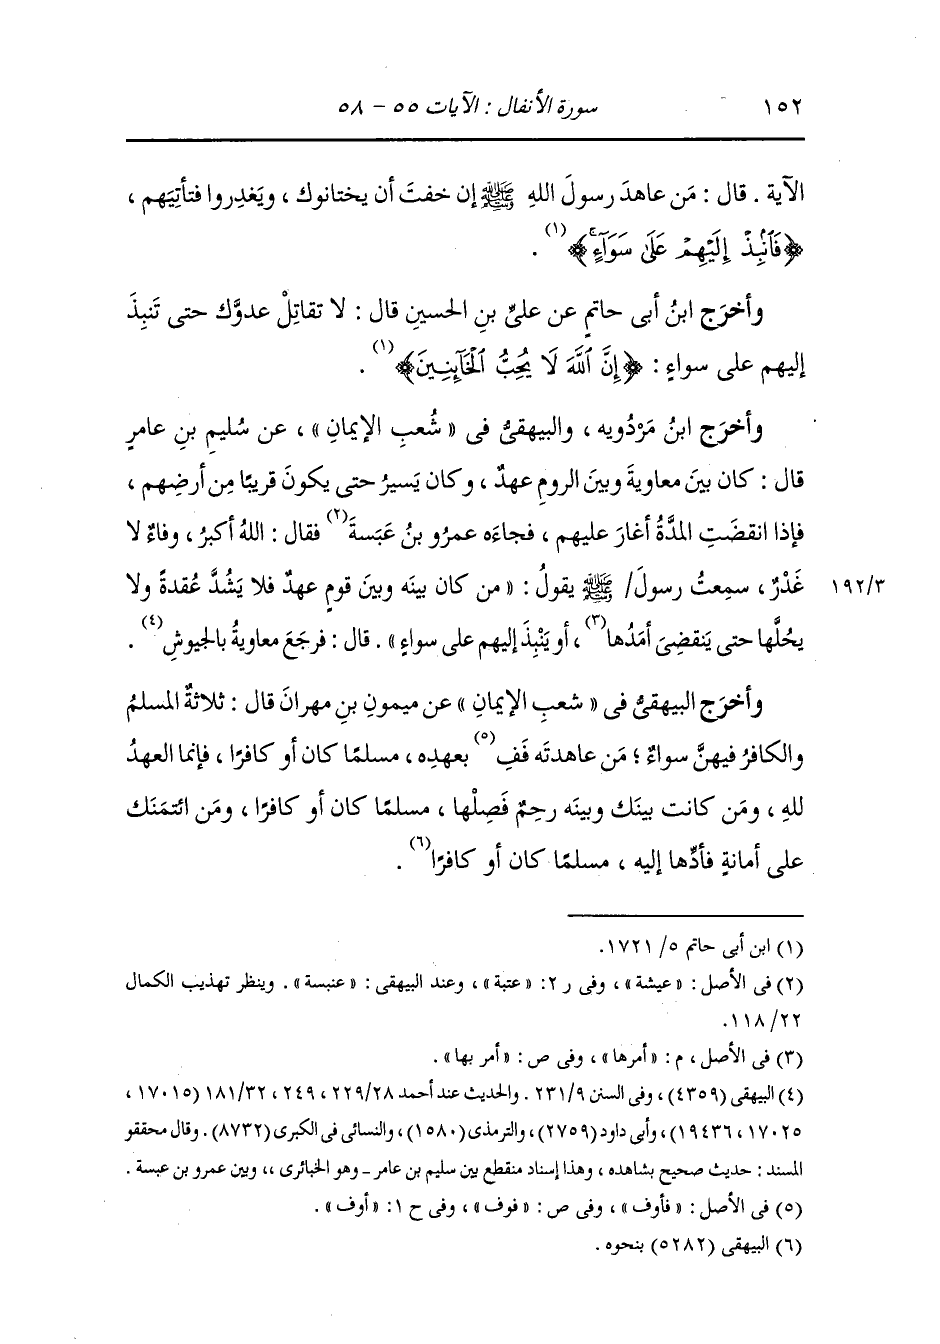 ١٥٢ سورة الأنفال : الآيات ٥٥ - ٥٨
الآية . قال : مَن عاهدَ رسولَ اللهِ ﷺ إن خفتَ أن يختانوك ، ويَغدِروا فتأتِيَهم ،
﴿فَٱنۢبِذۡ إِلَيۡهِمۡ عَلَىٰ سَوَآءٍۚ﴾ (١) .
وأخرَج ابنُ أبى حاتمٍ عن علىِّ بنِ الحسينِ قال : لا تقاتِلْ عدوَّك حتى تَنبِذَ
إليهم على سواءٍ : ﴿إِنَّ ٱللَّهَ لَا يُحِبُّ ٱلۡخَآئِنِينَ﴾ (١) .
وأخرَج ابنُ مَرْدُويه ، والبيهقىُّ فى « شُعبِ الإيمانِ » ، عن سُليمِ بنِ عامرٍ
قال : كان بينَ معاويةَ وبينَ الرومِ عهدٌ ، وكان يَسيرُ حتى يكونَ قريبًا مِن أرضِهم ،
فإذا انقضَتِ المدَّةُ أغارَ عليهم ، فجاءَه عمرُو بنُ عَبَسةَ (٢) فقال : اللهُ أكبرُ ، وفاءٌ لا
غَدْرٌ ، سمِعتُ رسولَ/ ﷺ يقولُ : « من كان بينَه وبينَ قومٍ عهدٌ فلا يَشُدَّ عُقدةً ولا ١٩٢/٣
يحُلَّها حتى يَنقضِىَ أمَدُها (٣) ، أو يَنْبِذَ إليهم على سواءٍ » . قال : فرجَعَ معاويةُ بالجيوشِ (٤) .
وأخرَج البيهقىُّ فى « شعبِ الإيمانِ » عن ميمونِ بنِ مهرانَ قال : ثلاثةٌ المسلمُ
والكافرُ فيهنَّ سواءٌ ؛ مَن عاهدتَه فَفِ (٥) بعهدِه ، مسلمًا كان أو كافرًا ، فإنما العهدُ
للهِ ، ومَن كانت بينَك وبينَه رحِمٌ فَصِلْها ، مسلمًا كان أو كافرًا ، ومَن ائتمَنَك
على أمانةٍ فأدِّها إليه ، مسلمًا كان أو كافرًا (٦) .
(١) ابن أبى حاتم ٥/ ١٧٢١.
(٢) فى الأصل : « عيشة » ، وفى ر ٢: « عتبة » ، وعند البيهقى : « عنبسة » . وينظر تهذيب الكمال
٢٢/ ١١٨.
(٣) فى الأصل ، م : « أمرها » ، وفى ص : « أمر بها » .
(٤) البيهقى (٤٣٥٩) ، وفى السنن ٢٣١/٩ . والحديث عند أحمد ٢٢٩/٢٨ ، ٢٤٩ ، ١٨١/٣٢ (١٧٠١٥ ،
١٧٠٢٥ ، ١٩٤٣٦) ، وأبى داود (٢٧٥٩) ، والترمذى (١٥٨٠) ، والنسائى فى الكبرى (٨٧٣٢) . وقال محققو
المسند : حديث صحيح بشاهده ، وهذا إسناد منقطع بين سليم بن عامر - وهو الخبائرى ،، وبين عمرو بن عبسة .
(٥) فى الأصل : « فأوف » ، وفى ص : « فوف » ، وفى ح ١: « أوف » .
(٦) البيهقى (٥٢٨٢) بنحوه .